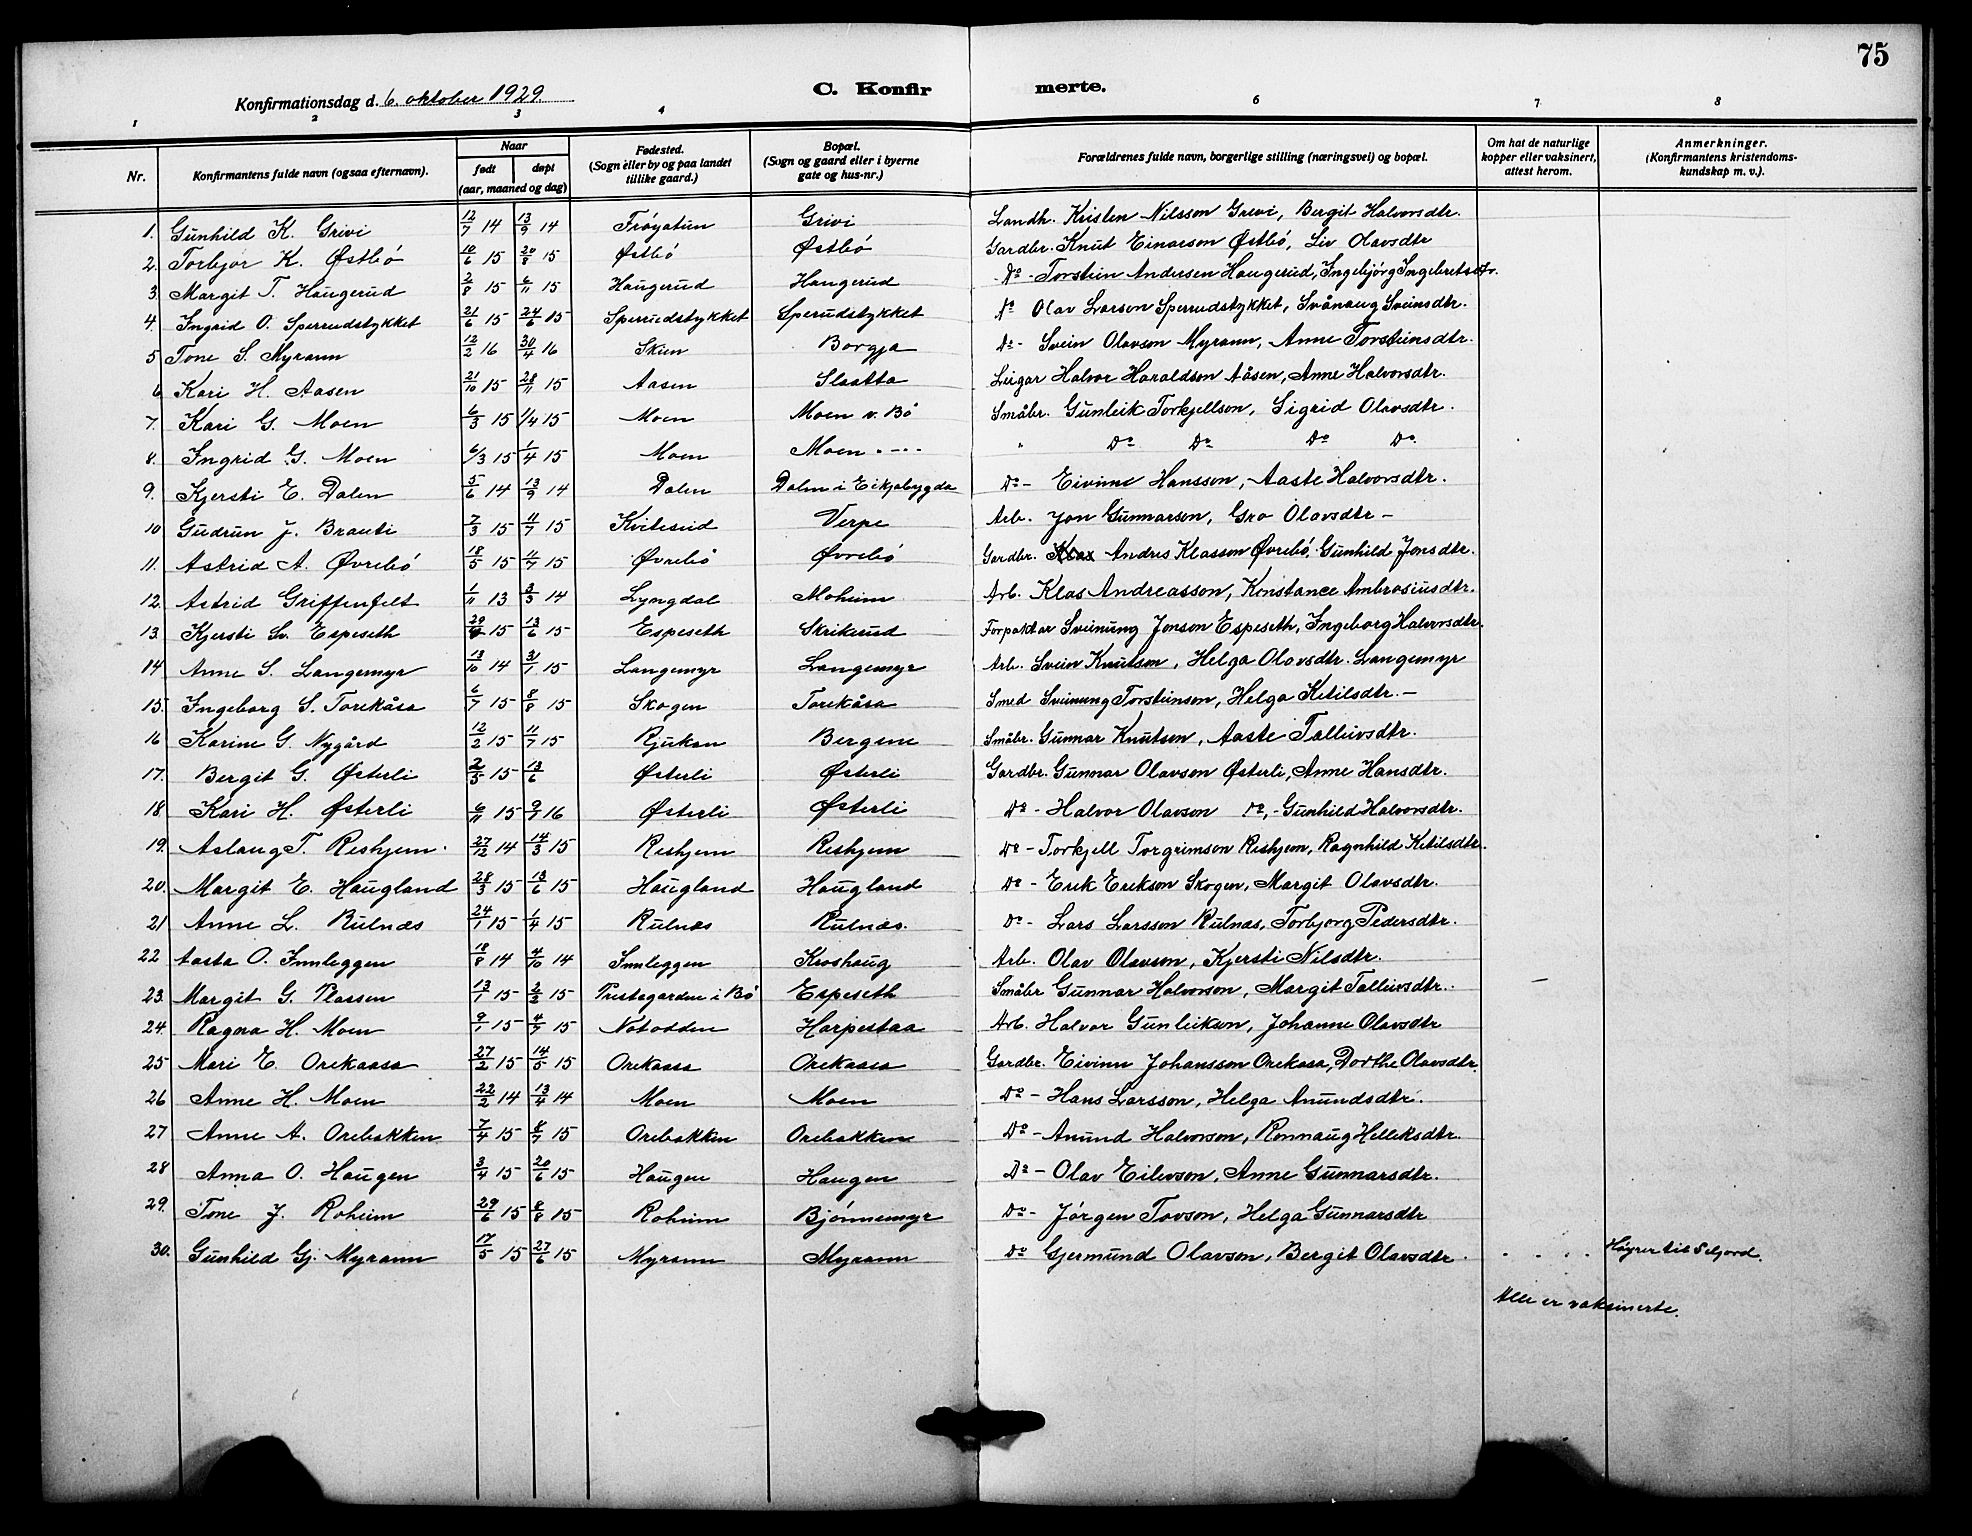 75
Konfirmationsdag d. 6. oktober 1929. C. Konfirmerte.
1 2 3 4 6 7 8
Nr. Konfirmantens fulde navn (ogsaa efternavn). Naar født døpt (aar, maaned og dag) Fødested. (Sogn eller by og paa landet tillike gaard.) Bopæl. (Sogn og gaard eller i byerne gate og hus-nr.) Forældrenes fulde navn, borgerlige stilling (næringsvei) og bopæl. Om hat de naturlige kopper eller vaksinert, attest herom. Anmerkninger. (Konfirmantens kristendoms-kundskap m. v.).
1. Gunhild K. Grivi 12/7 14 13/9 14 Frøyatun Grivi Landh. Kristen Nilsson Grevi, Bergit Halvorsdtr.
2. Torbjør K. Østbö 10/6 15 20/8 15 Østbö Østbö Gardbr. Knut Einarson Østbö, Liv Olavsdtr
3. Margit T. Haugerud 2/8 15 6/11 15 Haugerud Haugerud Do - Torstein Andresen Haugerud, Ingebjörg Ingebretsdtr.
4. Ingrid O. Sperrudstykket 21/6 15 24/6 15 Sperrudstykket Sperudstykket Do Olav Larson Sperrudstykket, Svånaug Sveinsdtr.
5 Tone S. Myrann 12/2 16 30/4 16 Skien Borgja Do - Svein Olavson Myrann, Anne Torsteinsdtr.
6 Kari H. Aasen 21/10 15 28/11 15 Aasen Slaatta Leigar Halvor Haraldson Aåsen, Anne Halvorsdtr.
7. Kari G. Moen 6/3 15 1/4 15 Moen Moen v. Bö Småbr. Gunleik Torkjellson, Sigrid Olavsdtr.
8. Ingrid G. Moen 6/3 15 1/4 15 Moen Moen - - - " Do Do Do Do
9. Kjersti E. Dalen 5/6 14 13/9 14 Dalen Dalen i Eikjabygda Do - Eivinn Hansson, Aaste Halvorsdtr.
10 Gudrun J. Brauti 7/3 15 11/7 15 Kviteseid Verpe Arb. Jon Gunnarson, Gro Olavsdtr -
11. Astrid A. Øvrebó 18/5 15 11/7 15 Øvrebö Øvrebó Gardbr. Klas Andres Klasson Øvrebó, Gunhild Jonsdtr.
12. Astrid Griffenfelt 1/11 13 3/3 14 Lyngdal Moheim Arb. Klas Andreasson, Konstance Ambrosiusdtr.
13. Kjersti Sv. Espeseth 15 13/6 15 Espeseth Skrikerud Forpaktar Sveinung Jonson Espeseth, Ingeborg Halvorsdtr.
14 Anne S. Langemyr 13/10 14 31/1 15 Langemyr Langemyr Arb. Svein Knutson, Helga Olavsdtr. Langemyr
15. Ingeborg S. Torekåsa 6/7 15 8/8 15 Skogen Torekåsa Smed Sveinung Torsteinson, Helga Ketilsdtr. -
16 Karine G. Nygård 12/2 15 11/7 15 Rjukan Bergene Småbr. Gunnar Knutson, Aaste Talleivsdtr.
17. Bergit G. Østerli 2/5 15 13/6 Østerli Østerli Gardbr. Gunnar Olavson Østerli, Anne Hansdtr.
18 Kari H. Østerli 6/11 15 9/1 16 Østerli Østerli Do - Halvor Olavson Do, - Gunhild Halvorsdtr.
19. Aslaug T. Reshjem. 27/12 14 14/3 15 Reshjem Reshjem Do - Torkjell Torgrimson Reshjem, Ragnhild Ketilsdtr.
20. Margit E. Haugland 28/3 15 13/6 15 Haugland Haugland Do - Erik Erikson Skogen, Margit Olavsdtr.
21 Anne L. Rulnæs 24/1 15 1/4 15 Rulnæs Rulnæs. Do - Lars Larsson Rulnæs, Torbjorg Pedersdtr.
22 Aasta O. Innleggen 18/8 14 4/10 14 Innleggen Kroshaug Arb. Olav Olavson, Kjersti Nilsdtr.
23. Margit G. Plassen 13/1 15 2/2 15 Prestegarden i Bö Espeseth Småbr Gunnar Halvorson, Margit Talleivsdtr.
24. Ragna H. Moen 9/1 15 4/7 15 Notodden Harpestaa Arb. Halvor Gunleikson, Johanne Olavsdtr
25 Mari E. Orekaasa 27/2 15 14/5 15 Orekaasa Orekaasa Gardbr. Eivinn Johansson Orekasa, Dorthe Olavsdtr.
26 Anne H. Moen 22/2 14 13/4 14 Moen Moen Do - Hans Larsson, Helga Anundsdtr.
27 Anne A. Orebakken 7/4 15 8/7 15 Orebakken Orebakken Do - Anund Halvorson, Ronnaug Helleksdtr.
28 Anna O. Haugen 3/4 15 20/6 15 Haugen Haugen Do - Olav Eilevson, Anne Gunnarsdtr.
29. Tone J. Roheim 29/6 15 8/8 15 Roheim Bjönnemyr Do - Jörgen Tovson, Helga Gunnarsdtr
30. Gunhild Gj. Myrann 17/5 15 27/6 15 Myrann Myrann Do Gjermund Olavson, Bergit Olavsdtr. . . . . Höyrer til Seljord.
Alle er vaksinerte.